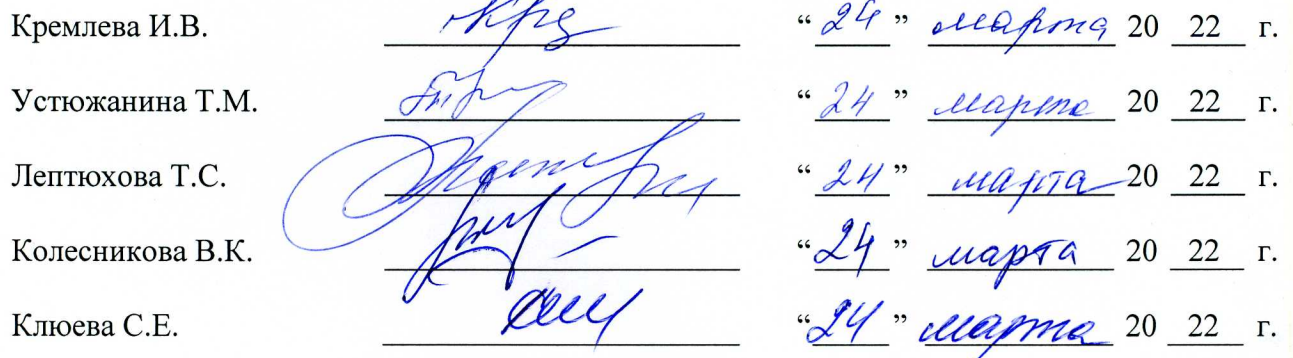 Кремлева И.В. “ 24 ” марта 20 22 г.
Устюжанина Т.М. “ 24 ” марта 20 22 г.
Лептюхова Т.С. “ 24 ” марта 20 22 г.
Колесникова В.К. “ 24 ” марта 20 22 г.
Клюева С.Е. “ 24 ” марта 20 22 г.